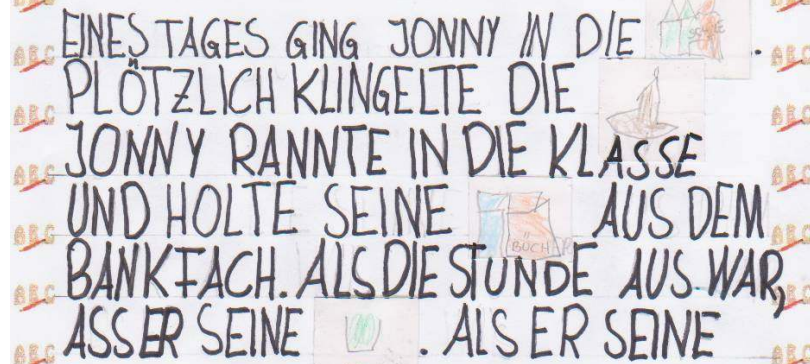 EINES TAGES GING JONNY IN DIE SCHULE.
PLÖTZLICH KLINGELTE DIE
JONNY RANNTE IN DIE KLASSE
UND HOLTE SEINE BÜCHER AUS DEM
BANKFACH. ALS DIE STUNDE AUS WAR,
ASS ER SEINE . ALS ER SEINE